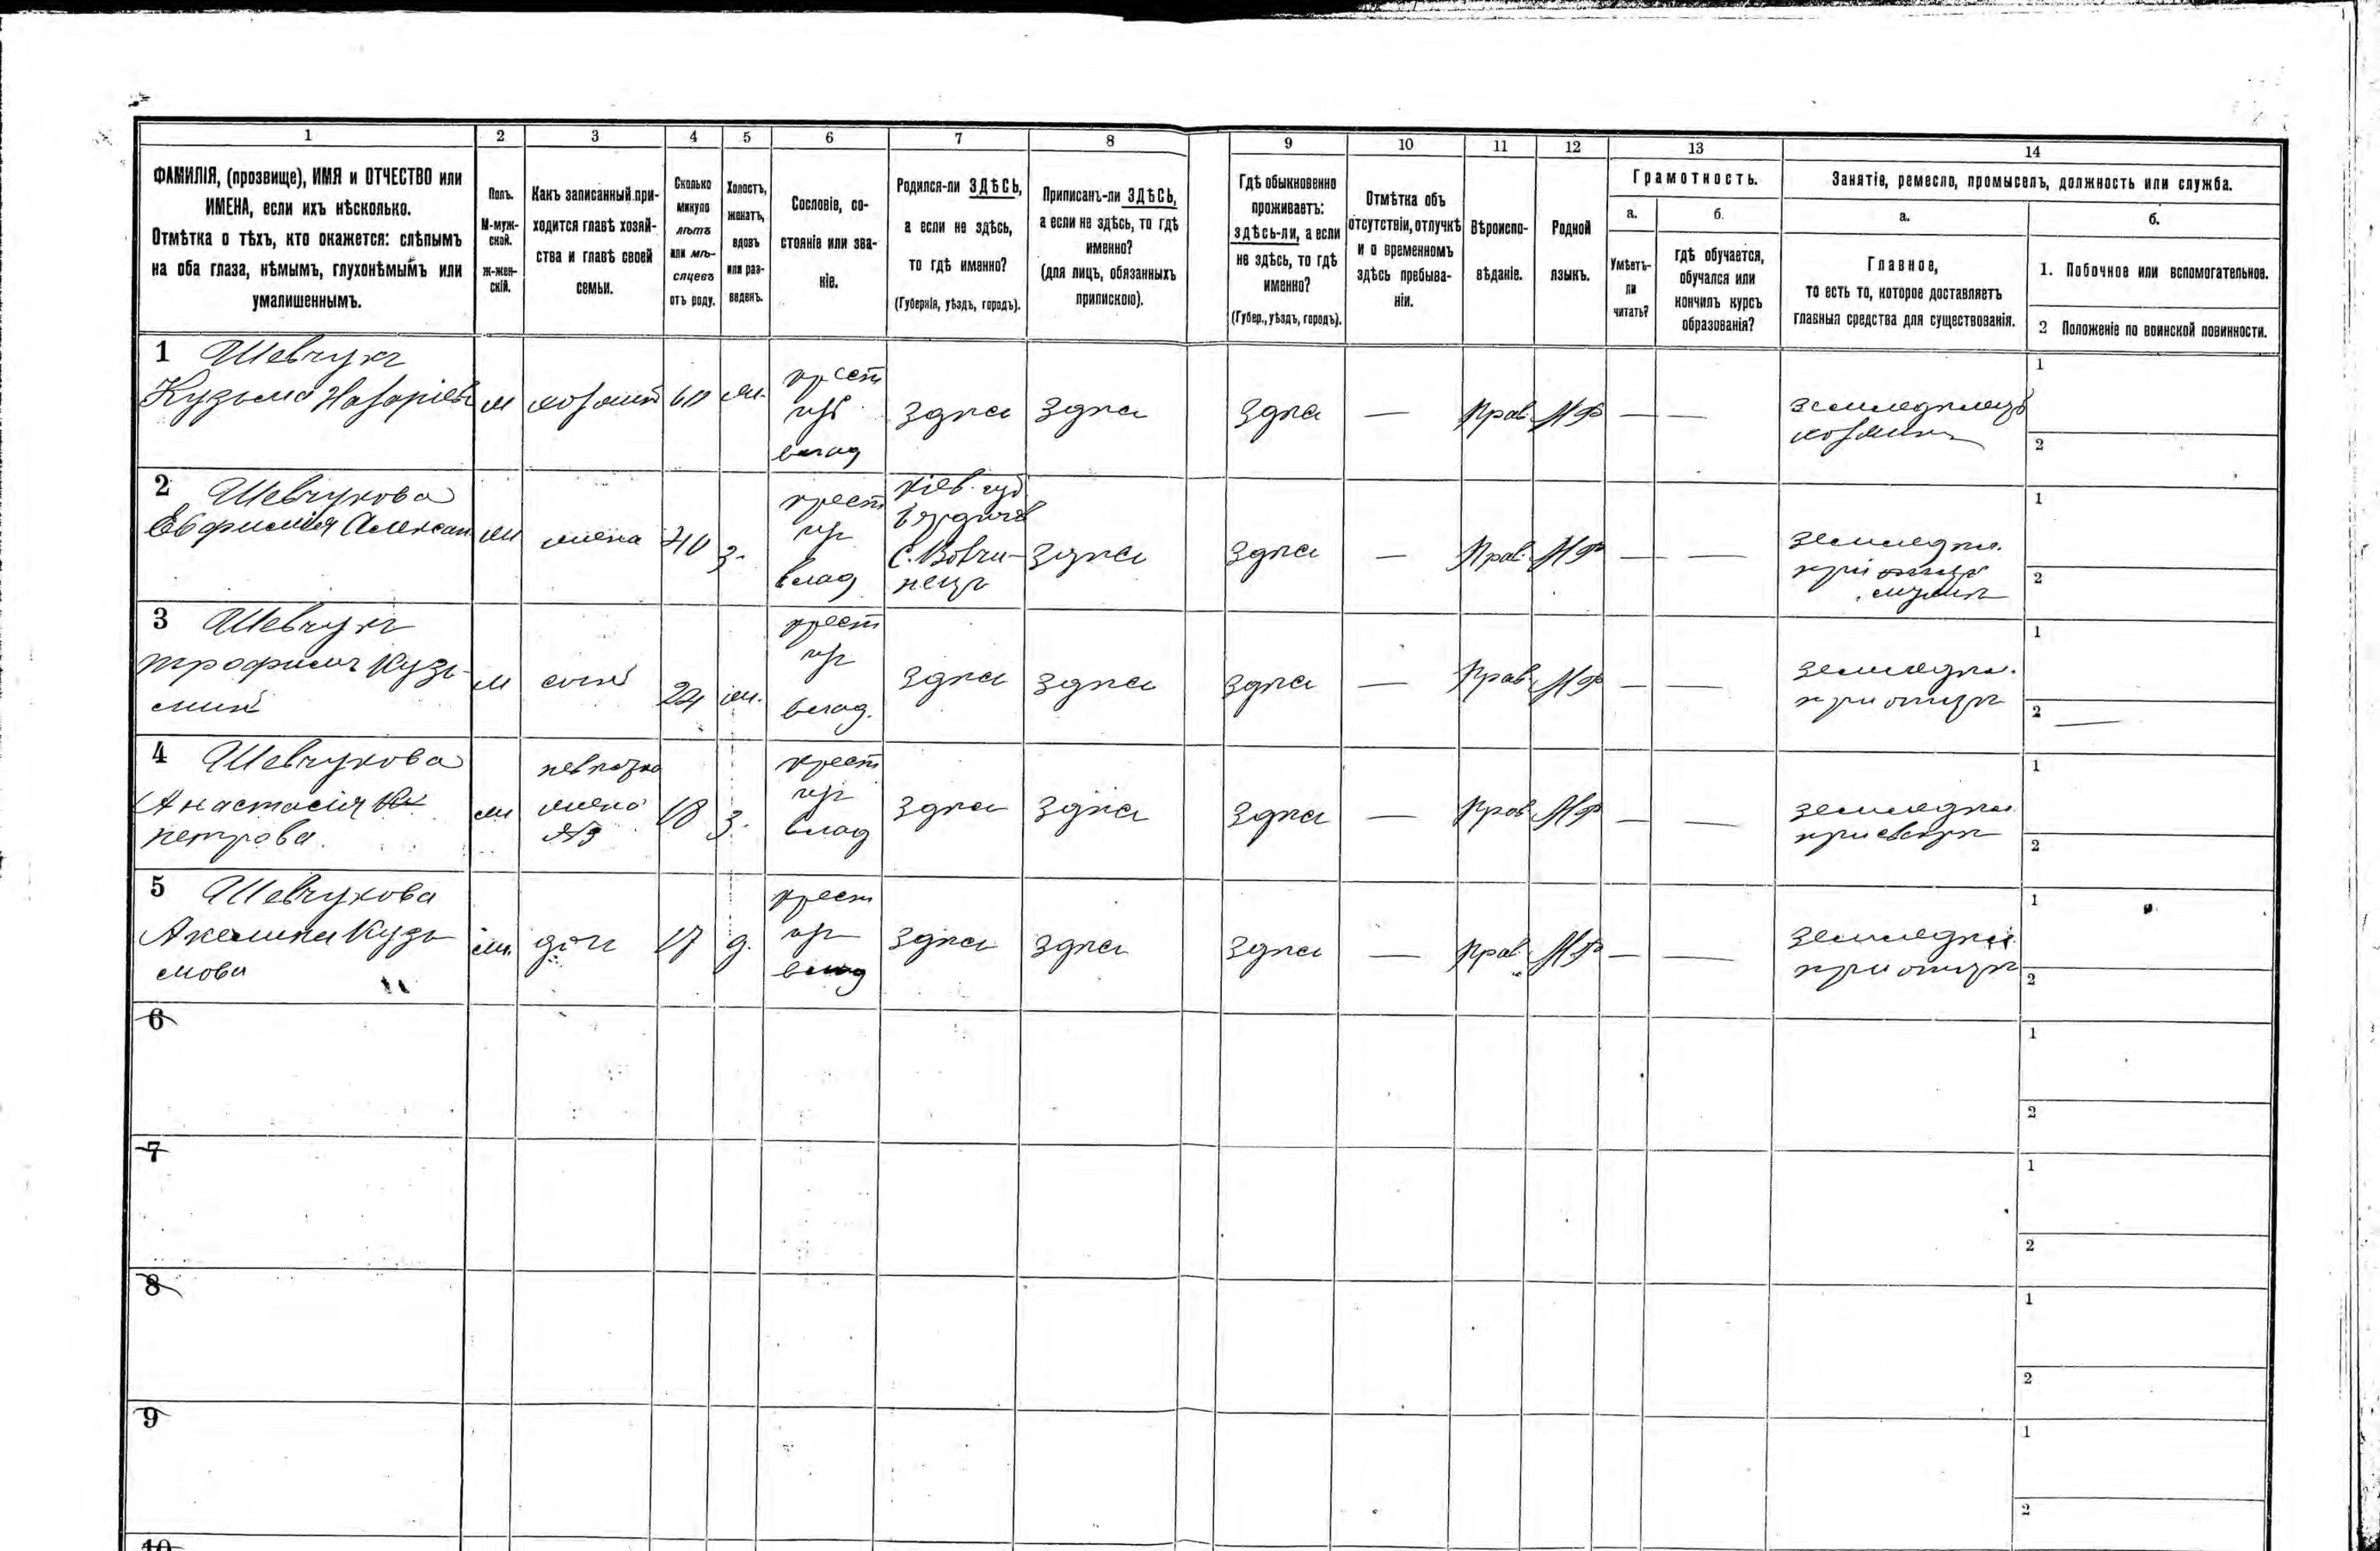 1
2
3
4
5
6
7
8
9
10
11
12
13
14
ФАМИЛІЯ, (прозвище), ИМЯ и ОТЧЕСТВО или
ИМЕНА, если ихъ нѣсколько.
Отмѣтка о тѣхъ, кто окажется: слѣпымъ
на оба глаза, нѣмымъ, глухонѣмымъ или
умалишеннымъ.
Полъ.
М-муж-
ской.
ж-жен-
скій.
Какъ записанный при-
ходится главѣ хозяй-
ства и главѣ своей
семьи.
Сколько
минуло
лѣтъ
или мѣ-
сяцевъ
отъ роду.
Холостъ,
женатъ,
вдовъ
или раз-
веденъ.
Сословіе, со-
стояніе или зва-
ніе.
Родился-ли ЗДѢСЬ,
а если не здѣсь,
то гдѣ именно?
(Губернія, уѣздъ, городъ).
Приписанъ-ли ЗДѢСЬ,
а если не здѣсь, то гдѣ
именно?
(для лицъ, обязанныхъ
припискою).
Гдѣ обыкновенно
проживаетъ:
здѣсь-ли, а если
не здѣсь, то гдѣ
именно?
(Губер., уѣздъ, городъ).
Отмѣтка объ
отсутствіи, отлучкѣ
и о временномъ
здѣсь пребыва-
ніи.
Вѣроиспо-
вѣданіе.
Родной
языкъ.
Грамотность.
а.
Умѣетъ-
ли
читать?
б.
гдѣ обучается,
обучался или
кончилъ курсъ
образованія?
Занятіе, ремесло, промыселъ, должность или служба.
а.
Главное,
то есть то, которое доставляетъ
главныя средства для существованія.
б.
1. Побочное или вспомогательное.
2 Положеніе по воинской повинности.
1 Шевчукъ
Кузьма Назаріевъ
м
хозяин
60
ж.
крест
влад
здѣсь
здѣсь
здѣсь
—
Прав.
—
—
земледѣлецъ
хозяин
1
2
2 Шевчукова
Евфимія Алексан
ж
жена
40
з.
крест
влад
Кіев. губ.
с. Вовчи-
нецъ
здѣсь
здѣсь
—
Прав.
—
—
земледѣл.
при
мужѣ
1
2
3 Шевчукъ
Трофимъ Кузь-
мин
м
сынъ
24
ж.
крест
влад.
здѣсь
здѣсь
здѣсь
—
Прав.
—
—
земледѣл.
при отцѣ
1
2 —
4 Шевчукова
Анастасія
Петрова
ж
невѣстка
жена
№3
18
з.
крест
влад
здѣсь
здѣсь
здѣсь
—
Прав.
—
—
земледѣл
при свекрѣ
1
2
5 Шевчукова
Акилина Кузь
мова
ж.
доч
17
д.
крест
влад
здѣсь
здѣсь
здѣсь
—
Прав.
—
—
земледѣл.
при отцѣ
1
2
6
1
2
7
1
2
8
1
2
9
1
2
10